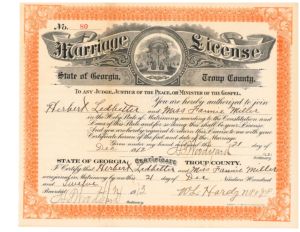 No. 80
Marriage License
State of Georgia, Troup County.
TO ANY JUDGE, JUSTICE OF THE PEACE, OR MINISTER OF THE GOSPEL.
You are hereby authorized to join
Herbert Ledbetter and Miss Fannie Miller
in the Holy State of Matrimony according to the Constitution and
Laws of this State and for so doing this shall be your License
And you are hereby required to return this License to me with your
Certificate hereon of the fact and date of the Marriage.
Given under my hand and seal this 21 day of
Dec
Ordinary.
STATE OF GEORGIA, Certificate TROUP COUNTY.
I Certify that Herbert Ledbetter and Miss Fannie Miller
were joined in Matrimony by me this 21 day of Dec Nineteen Hundred
and Twelve
W L Hardy
Ordinary.